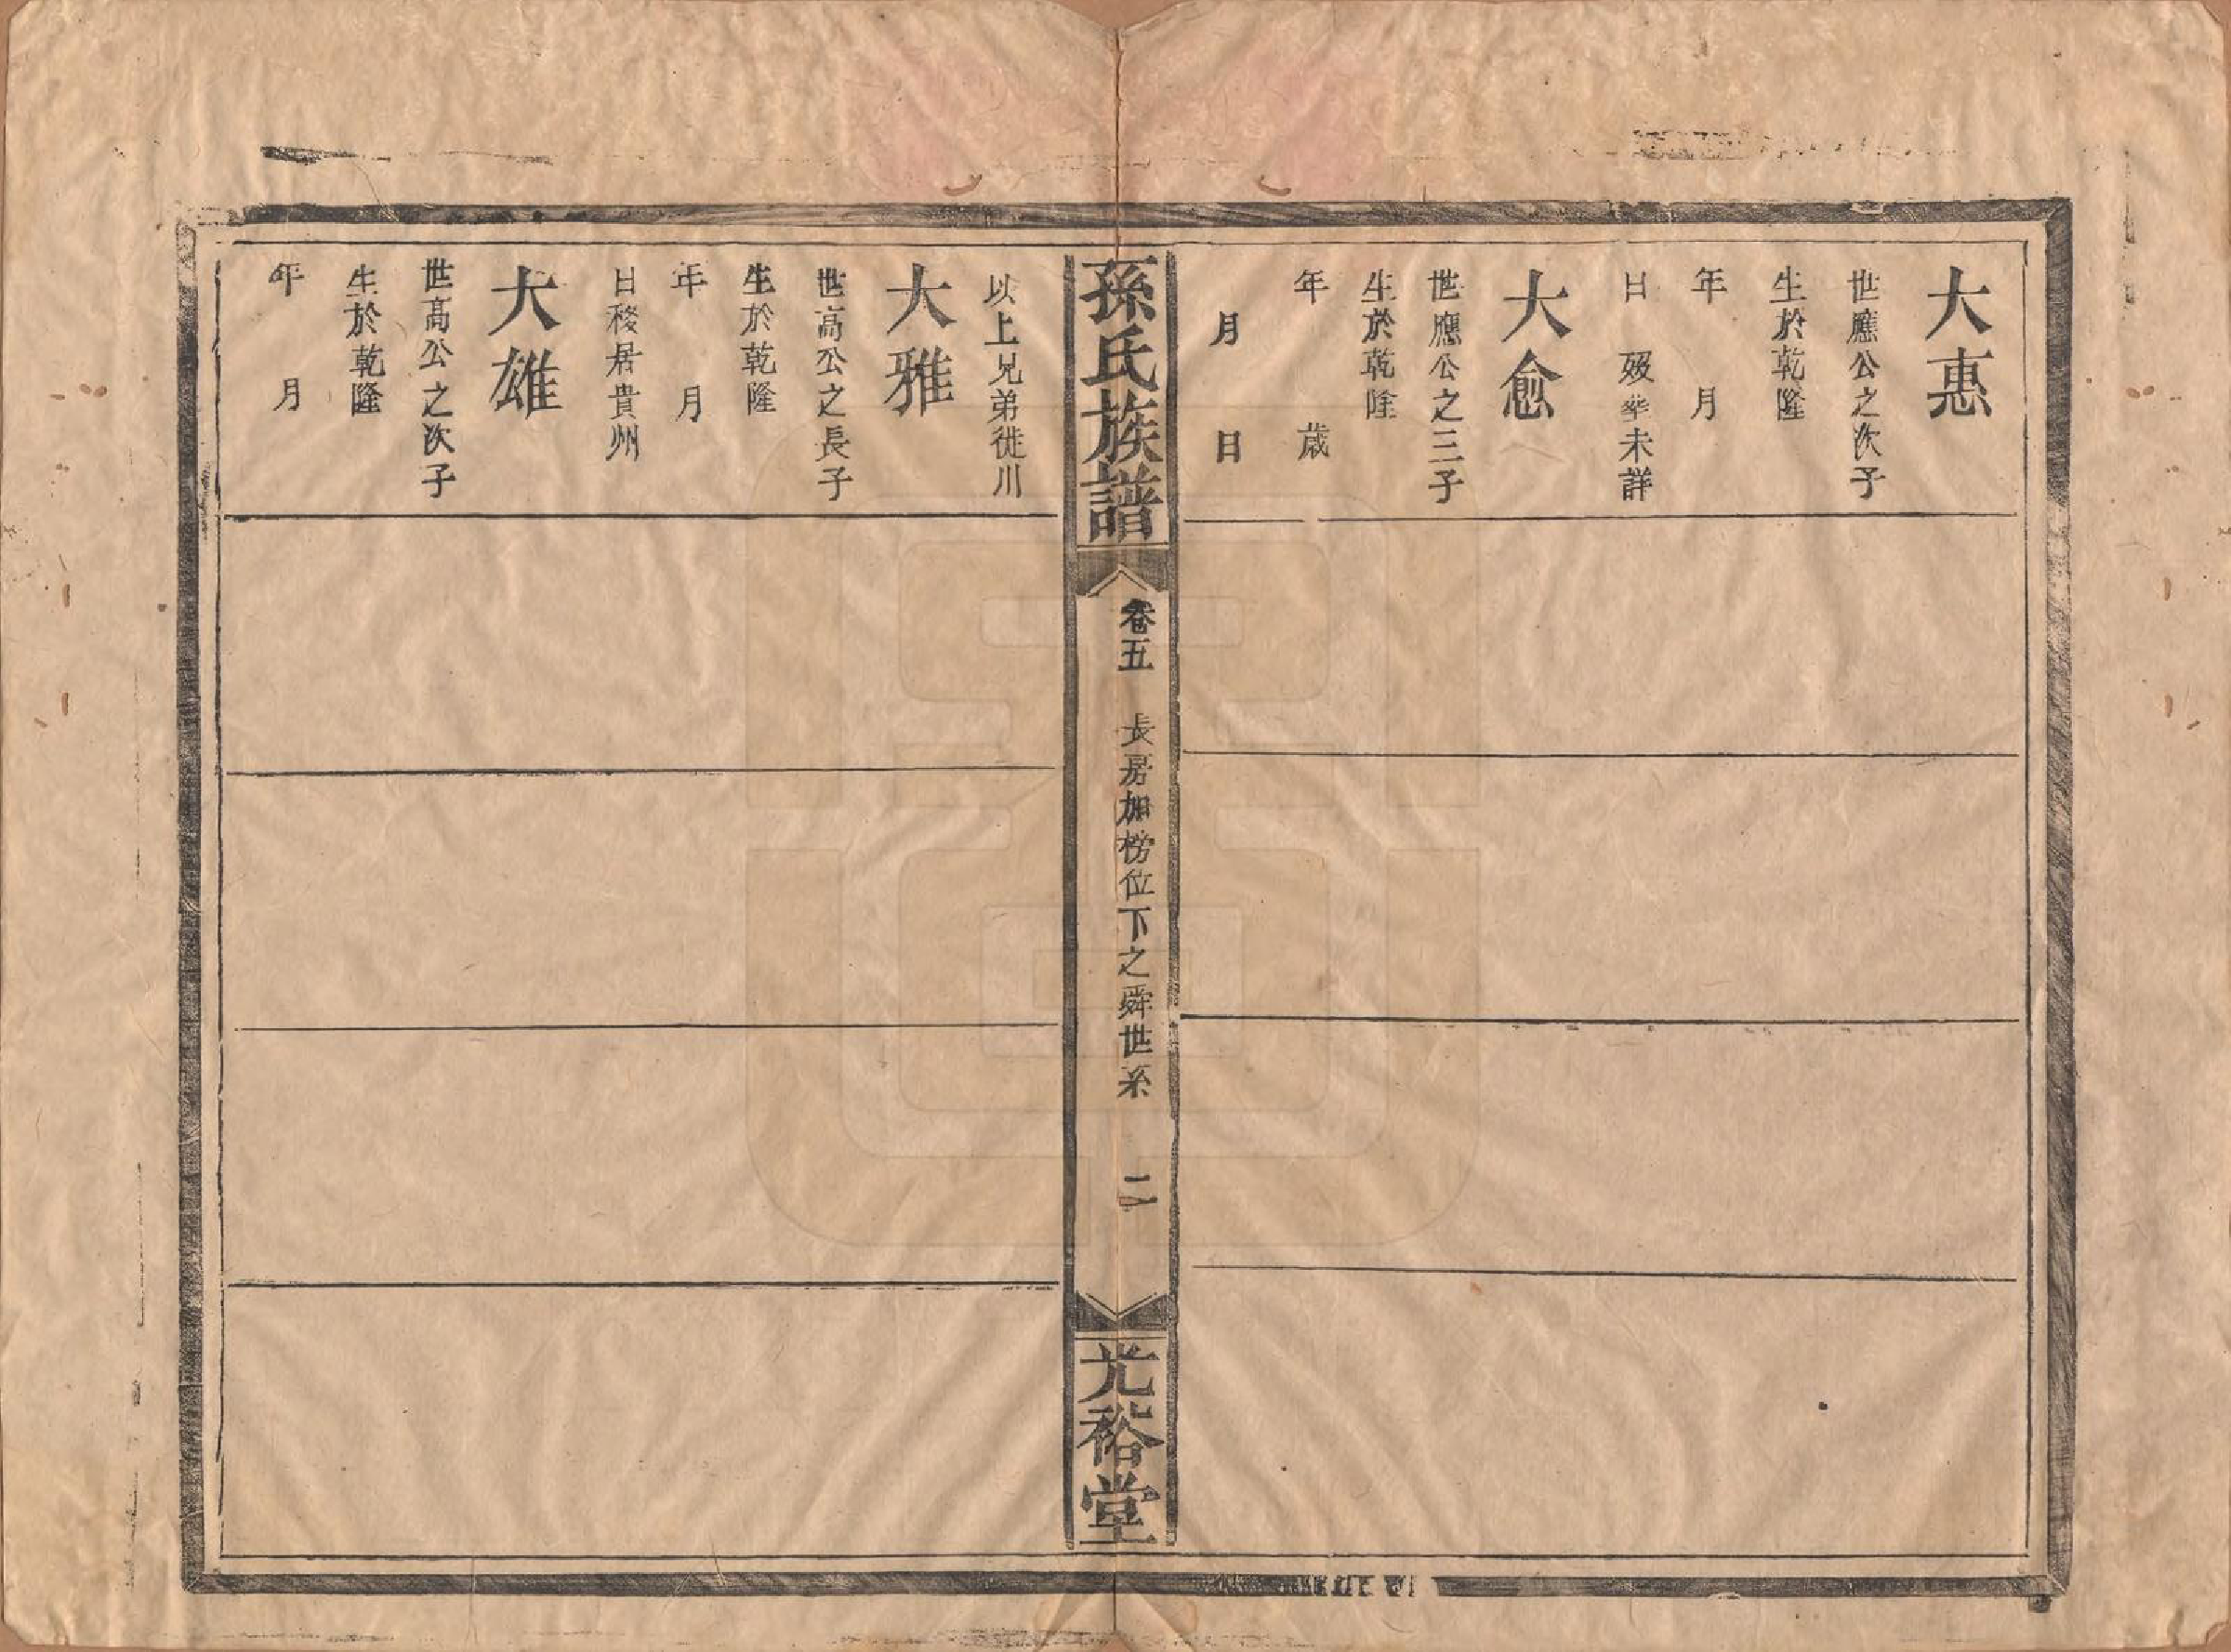 大惠
世應公之次子
生於乾隆
年 月
日 歿葬未詳
大愈
世應公之三子
生於乾隆
年 歲
月 日
孫氏族譜
卷五 長房加榜位下之舜世系 二
光裕堂
以上兄弟徙川
大雅
世高公之長子
生於乾隆
年 月
日移居貴州
大雄
世高公之次子
生於乾隆
年 月